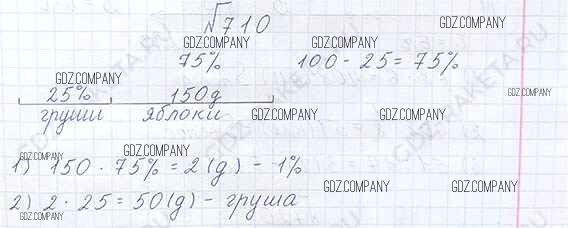 №710
GDZ.COMPANY GDZ.COMPANY
75% 100 - 25 = 75%
GDZ.COMPANY
25% 150д GDZ.COMPANY
груши яблоки GDZ.COMPANY GDZ.COMPANY
GDZ.COMPANY GDZ.COMPANY
1) 150 · 75% = 2(д) - 1%
GDZ.COMPANY GDZ.COMPANY
2) 2 · 25 = 50(д) - груша
GDZ.COMPANY
GDZ-RAKETA.RU